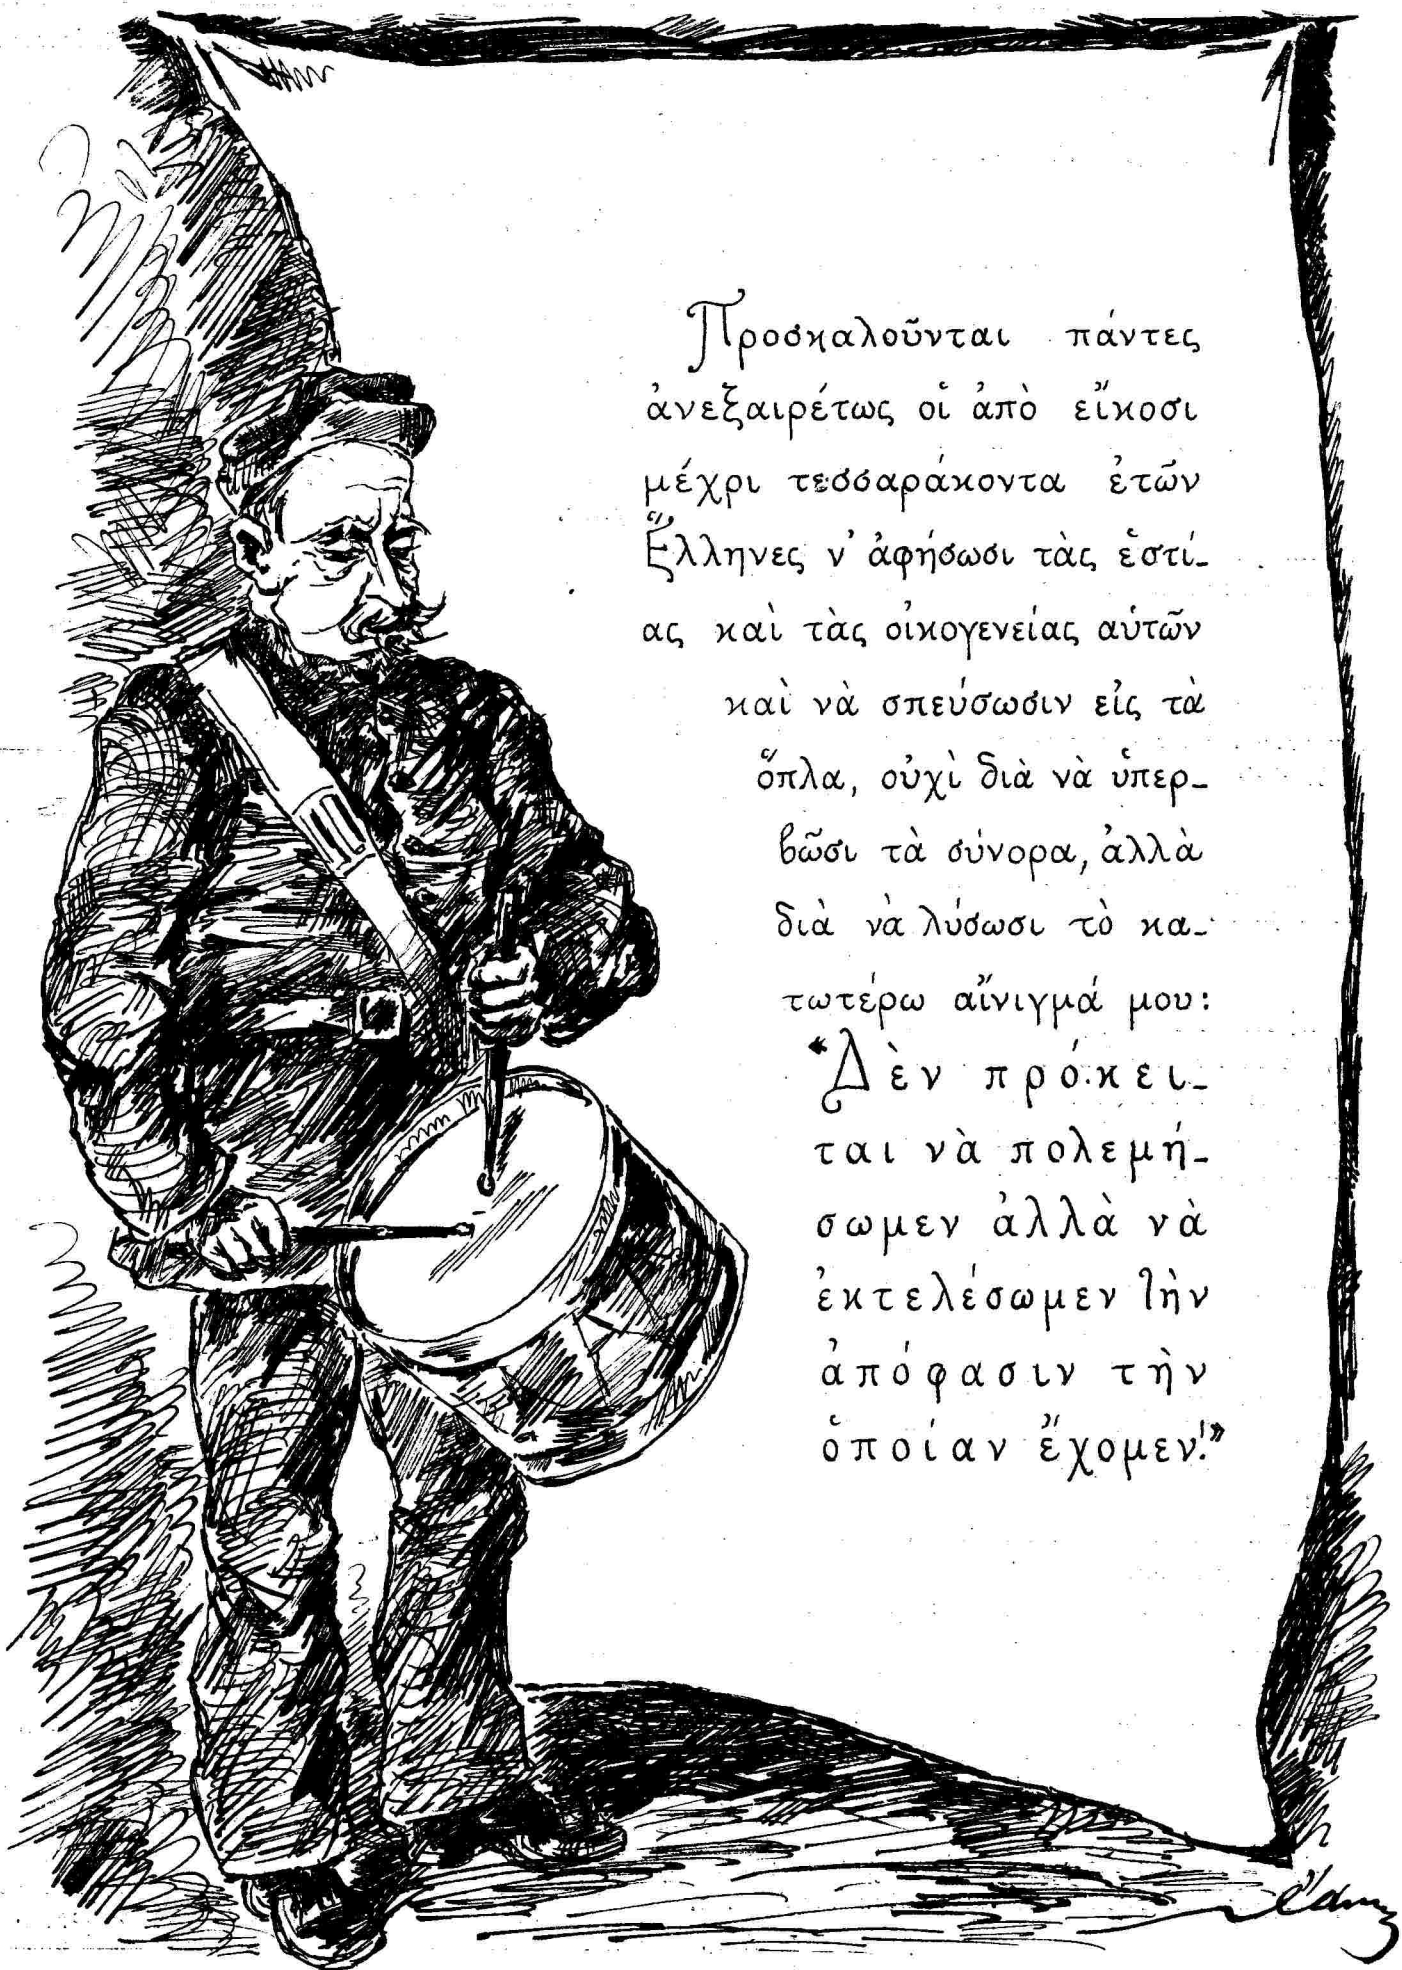 Προσκαλοῦνται πάντες
ἀνεξαιρέτως οἱ ἀπὸ εἴκοσι
μέχρι τεσσαράκοντα ἐτῶν
Ἕλληνες ν' ἀφήσωσι τὰς ἑστί-
ας καὶ τὰς οἰκογενείας αὑτῶν
καὶ νὰ σπεύσωσιν εἰς τὰ
ὅπλα, οὐχὶ διὰ νὰ ὑπερ-
βῶσι τὰ σύνορα, ἀλλὰ
διὰ νὰ λύσωσι τὸ κα-
τωτέρω αἴνιγμά μου:
“Δὲν πρόκει-
ται νὰ πολεμή-
σωμεν ἀλλὰ νὰ
ἐκτελέσωμεν τὴν
ἀπόφασιν τὴν
ὁποίαν ἔχομεν!”